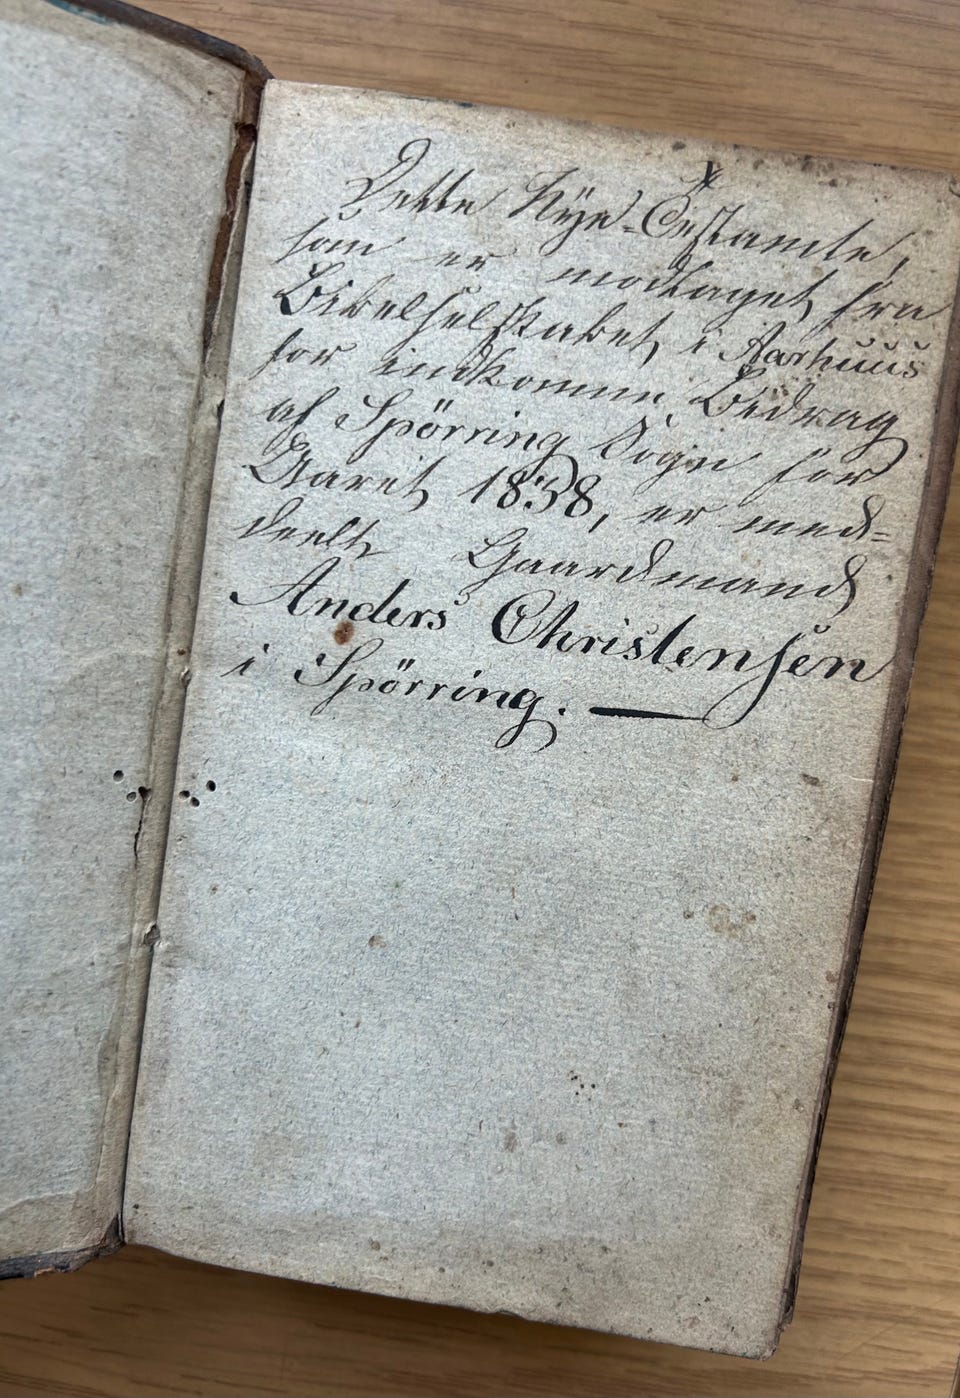 Dette Nÿe-Testamte,
som er modtaget fra
Bibelselskabet i Aarhuus
for indkomm. Bidrag
af Spörring Sogn for
Aaret 1838, er med=
deelt Gaardmand
Anders Christensen
i Spörring. —